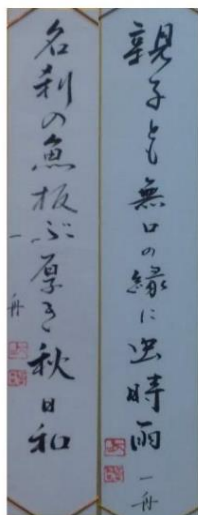 親子とも無口の縁に虫時雨
一舟
名刹の魚板ぶ厚き秋日和
一舟